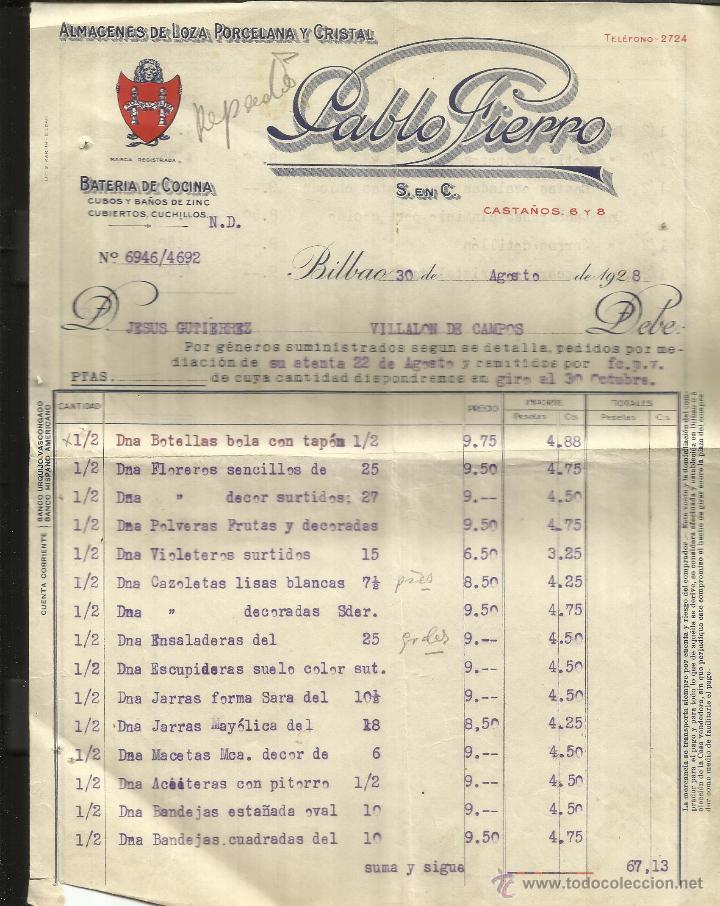 ALMACENES DE LOZA, PORCELANA Y CRISTAL
TELÉFONO-2724
Pablo Fierro
S. EN C.
CASTAÑOS, 6 Y 8
MARCA REGISTRADA
BATERIA DE COCINA
CUBOS Y BAÑOS DE ZINC
CUBIERTOS, CUCHILLOS
N.D.
Nº 6946/4692
Bilbao 30 de Agosto de 1928
D. JESUS GUTIERREZ VILLALON DE CAMPOS Debe:
Por géneros suministrados segun se detalla, pedidos por me-
diación de su atenta 22 de Agosto y remitidos por fc.p.v.
PTAS. de cuya cantidad dispondremos en giro al 30 Octubre.
CANTIDAD PRECIO IMPORTE TOTALES
Pesetas Cs Pesetas Cs
x1/2 Dna Botellas bola con tapón 1/2 9.75 4.88
1/2 Dna Floreros sencillos de 25 9.50 4.75
1/2 Dna " decor surtidos: 27 9.-- 4.50
1/2 Dna Polveras Frutas y decoradas 9.50 4.75
1/2 Dna Violeteros surtidos 15 6.50 3.25
1/2 Dna Cazoletas lisas blancas 7½ 8.50 4.25
1/2 Dna " decoradas Sder. 9.50 4.75
1/2 Dna Ensaladeras del 25 9.-- 4.50
1/2 Dna Escupideras suelo color sut. 9.-- 4.50
1/2 Dna Jarras forma Sara del 10½ 9.-- 4.50
1/2 Dna Jarras Mayólica del 18 8,50 4.25
1/2 Dna Macetas Mca. decor de 6 9.-- 4.50
1/2 Dna Aceiteras con pitorro 1/2 9.-- 4.50
1/2 Dna Bandejas estañada oval 10 9.-- 4.50
1/2 Dna Bandejas.cuadradas del 10 9.50 4.75
suma y sigue 67,13
CUENTA CORRIENTE
BANCO URQUIJO VASCONGADO
BANCO HISPANO AMERICANO
www.todocoleccion.net